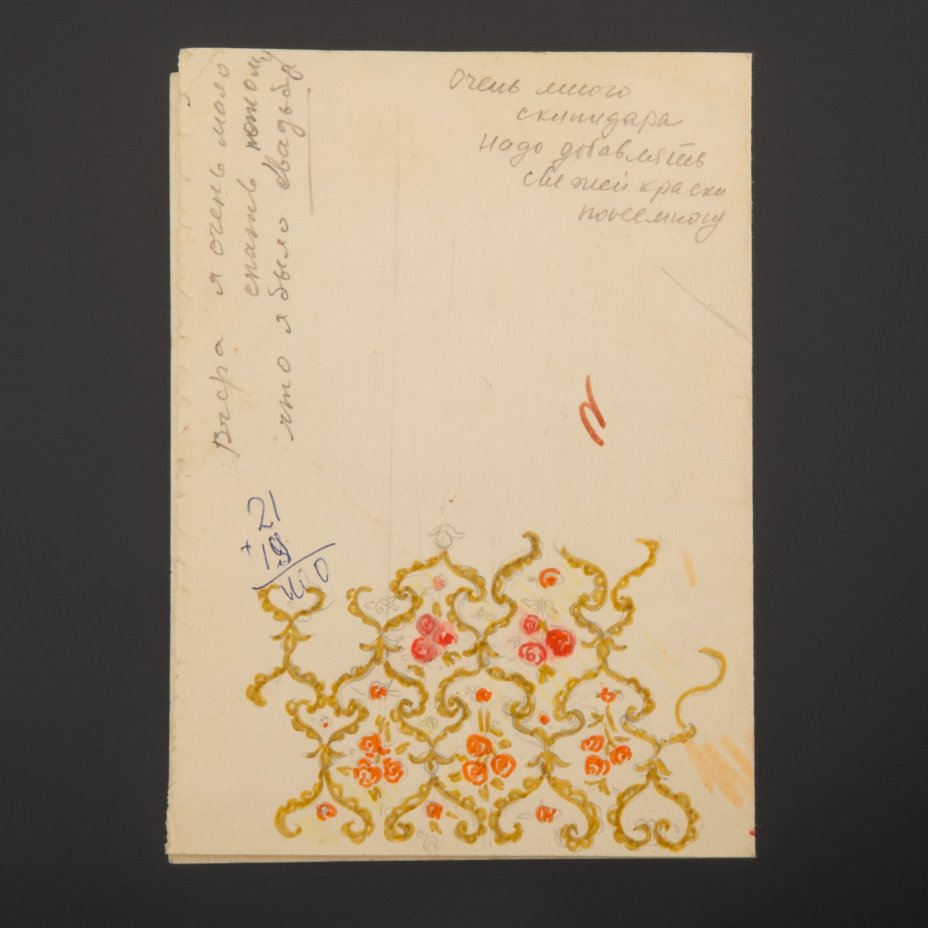 Очень много
скипидара
надо добавлять
свежей краски
понемногу
Вчера я очень мало
спать потому
что я было свадьбу
21
+
19
400